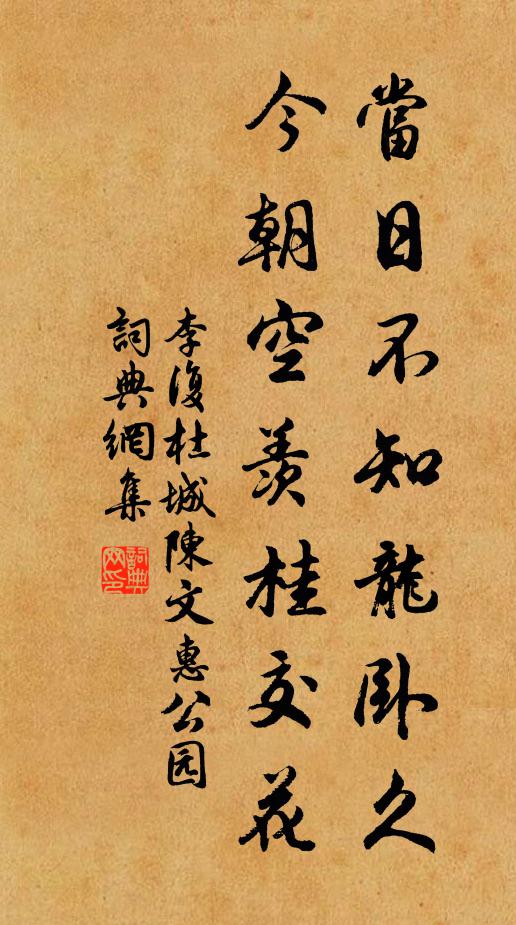 當日不知龍臥久
今朝空羨桂交花
李復杜城陳文惠公园
詞典網集
詞典网印